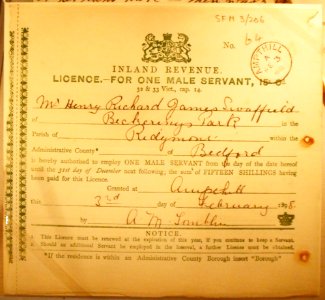 SFM 3/206
No. 64
AMPTHILL
INLAND REVENUE.
LICENCE.—FOR ONE MALE SERVANT, 15-0
32 & 33 Vict., cap. 14.
Mr Henry Richard James Swaffield
of Park
Parish of Ridgmont within the
Administrative County of Bedford
is hereby authorised to employ ONE MALE SERVANT from the day of the date hereof
until the 31st day of December next following, the sum of FIFTEEN SHILLINGS having
been paid for this Licence.
Granted at Ampthill
this 3rd day of February
by A M Tomblin
NOTICE.
1. This Licence must be renewed at the expiration of this year, if you continue to keep a Servant.
2. Should an additional Servant be employed in the interval, a further Licence must be obtained.
*If the residence is within an Administrative County Borough insert "Borough"